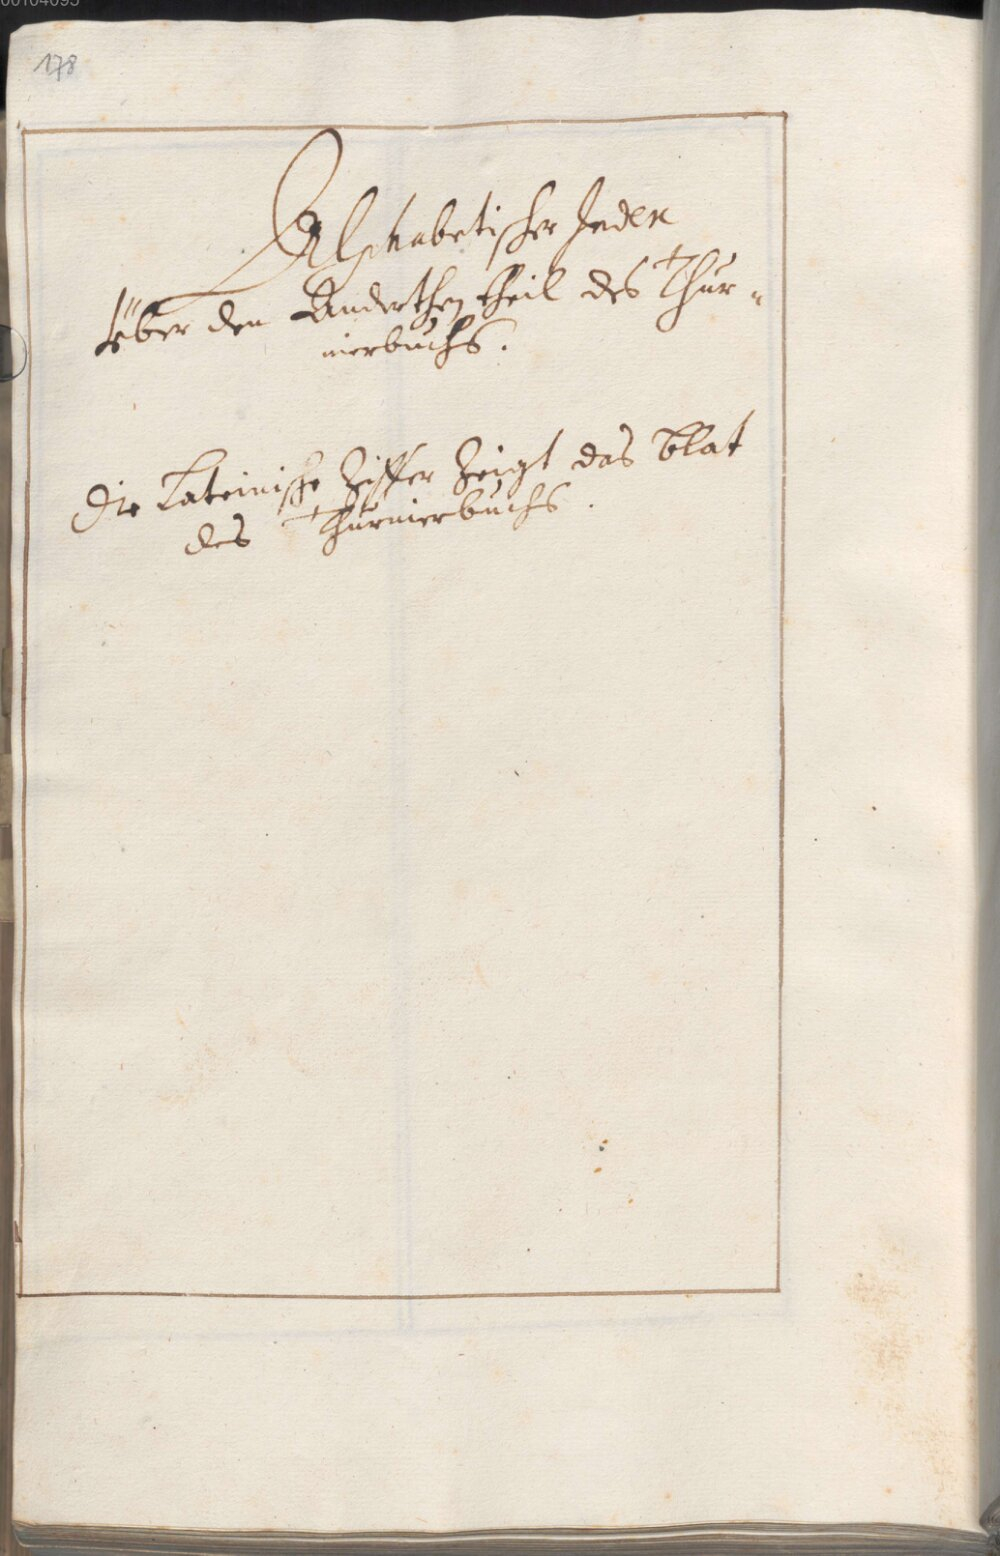 00104095
178
Alphabetischer Index
Über den Anderthen theil des Thur=
nierbuchs.
Die Lateinische Ziffer Zeigt das Blat
des Thurnierbuchs.